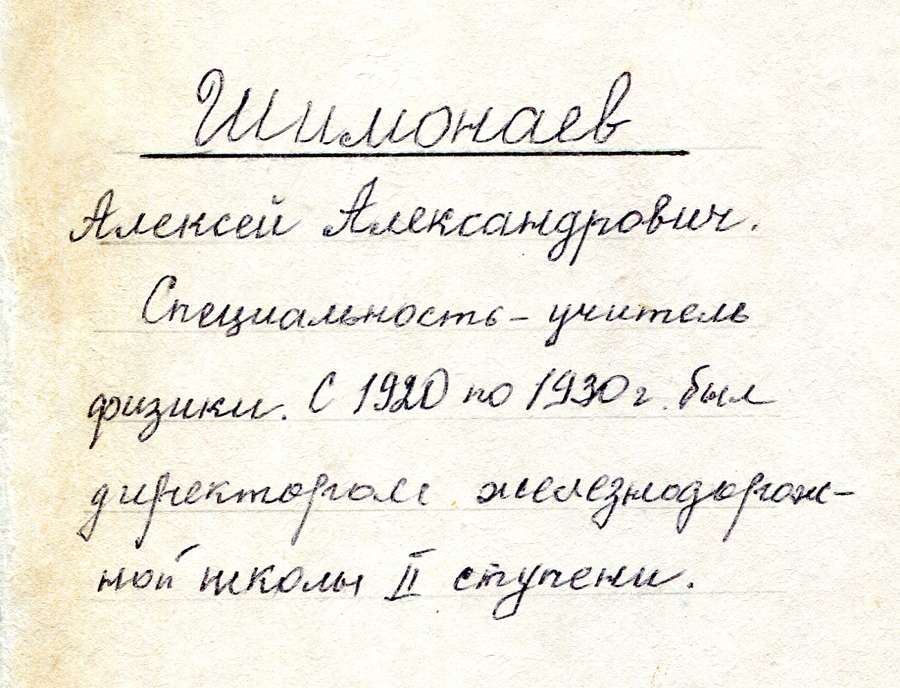 Шимонаев
Алексей Александрович.
Специальность – учитель
физики. С 1920 по 1930 г. был
директором железнодорож-
ной школы II ступени.